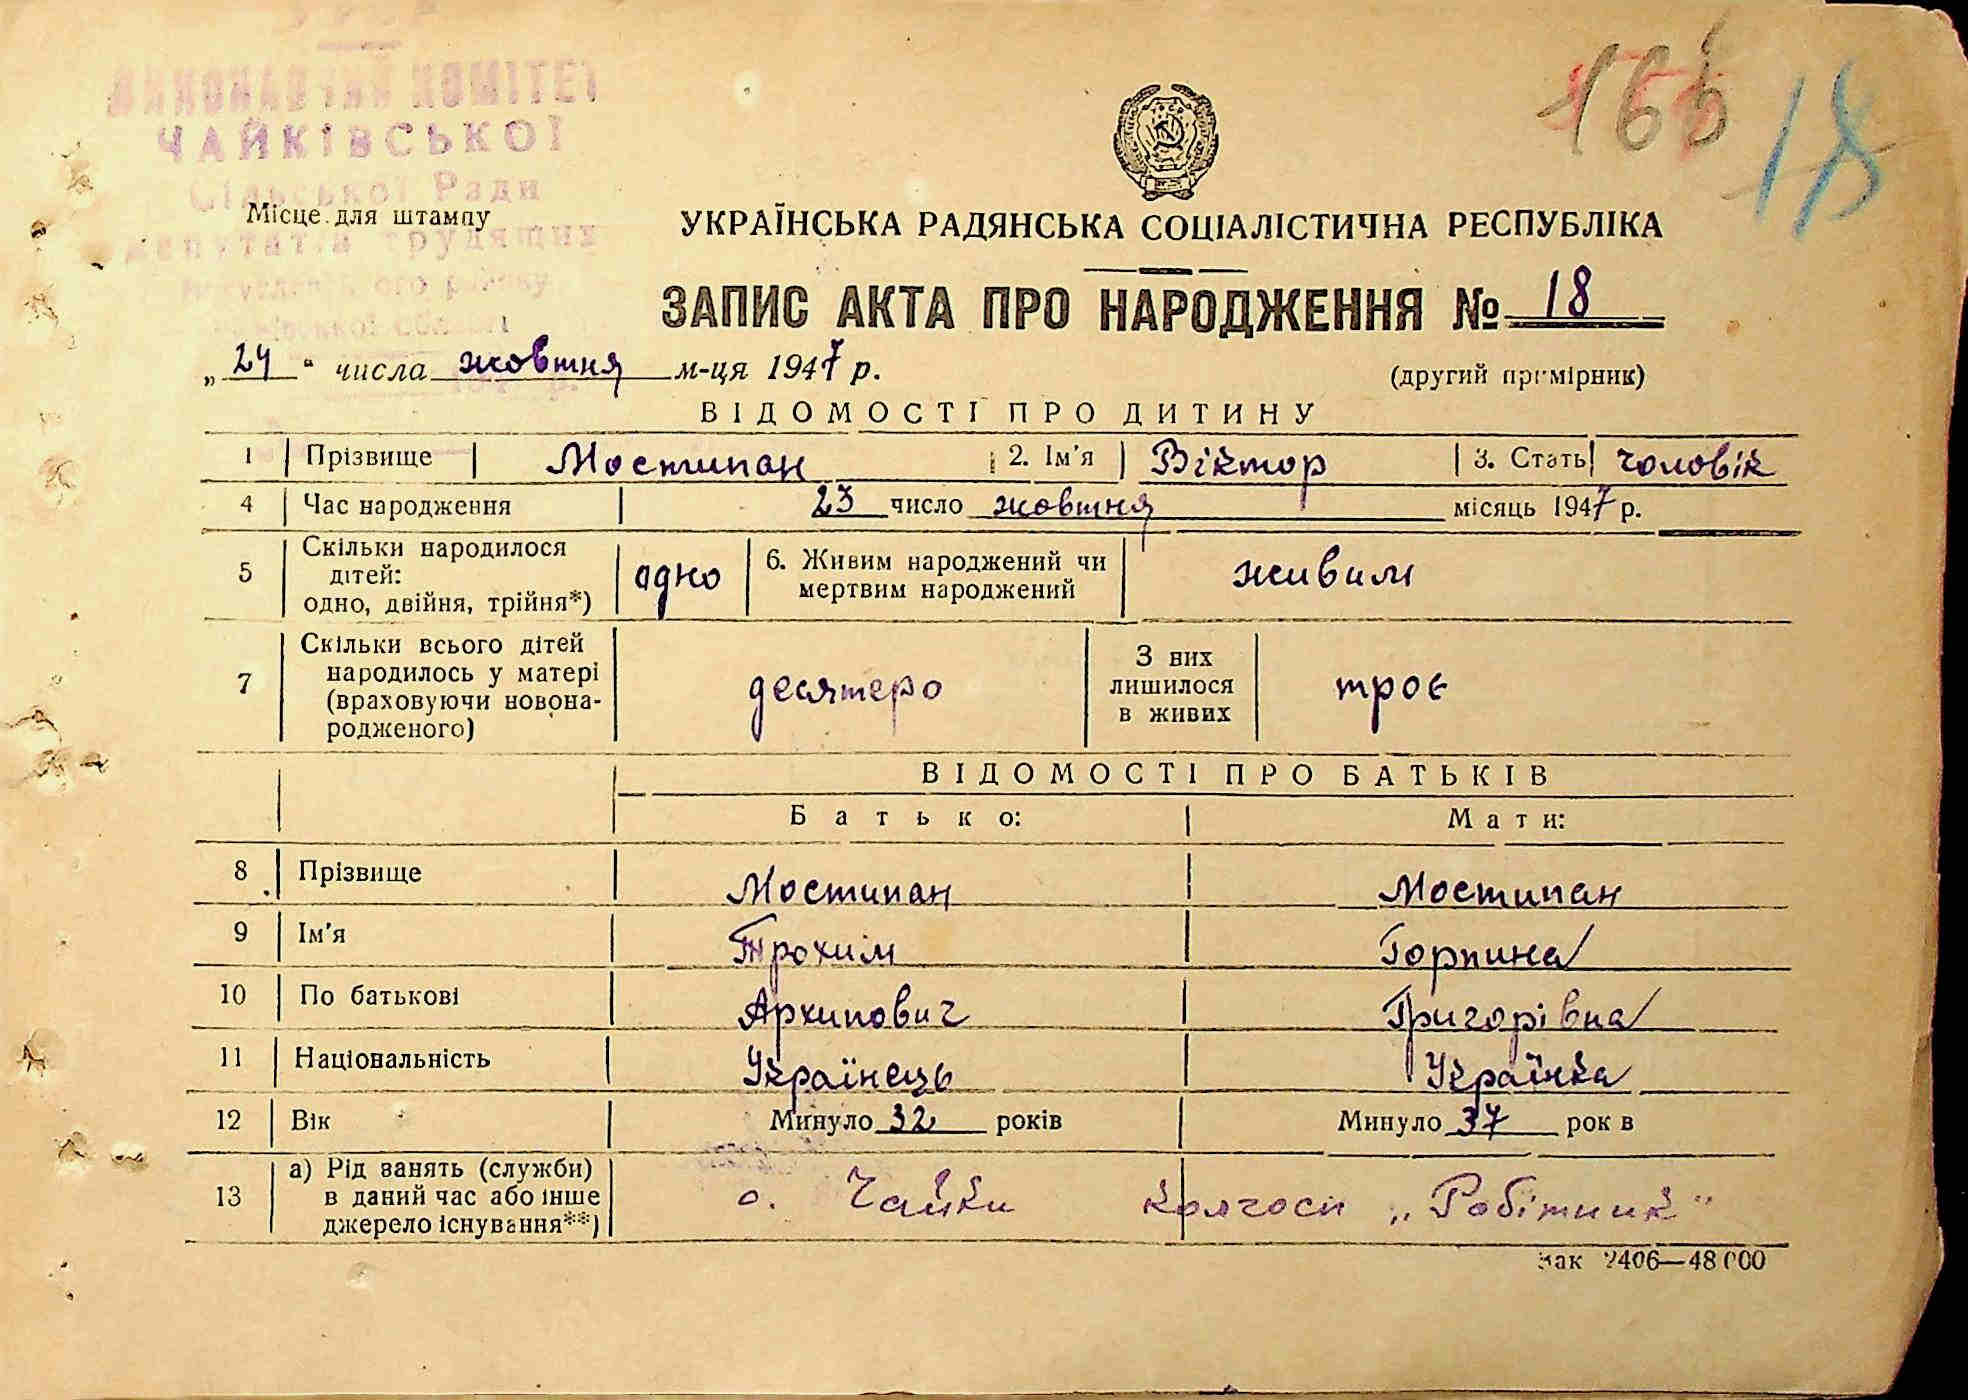 УРСР
ВИКОНАВЧИЙ КОМІТЕТ
ЧАЙКІВСЬКОЇ
Сільської Ради
депутатів трудящих
165 18
Місце для штампу
УКРАЇНСЬКА РАДЯНСЬКА СОЦІАЛІСТИЧНА РЕСПУБЛІКА
ЗАПИС АКТА ПРО НАРОДЖЕННЯ № 18
„24" числа жовтня м-ця 1947 р.
(другий примірник)
ВІДОМОСТІ ПРО ДИТИНУ
1 Прізвище Мостипан 2. Ім'я Віктор 3. Стать чоловік
4 Час народження 23 число жовтня місяць 1947 р.
5 Скільки народилося дітей: одно, двійня, трійня*) одно 6. Живим народжений чи мертвим народжений живим
7 Скільки всього дітей народилось у матері (враховуючи новонародженого) десятеро З них лишилося в живих троє
ВІДОМОСТІ ПРО БАТЬКІВ
Батько: Мати:
8 Прізвище Мостипан Мостипан
9 Ім'я Трохим Горпина
10 По батькові Архипович Григорівна
11 Національність Українець Українка
12 Вік Минуло 32 років Минуло 37 рок в
13 а) Рід занять (служби) в даний час або інше джерело існування**) с. Чайки колгосп „Робітник"
Зак 2406—48000